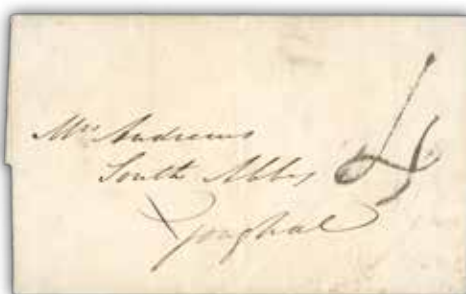 Mrs Andrews
South Abbey 4
Youghal